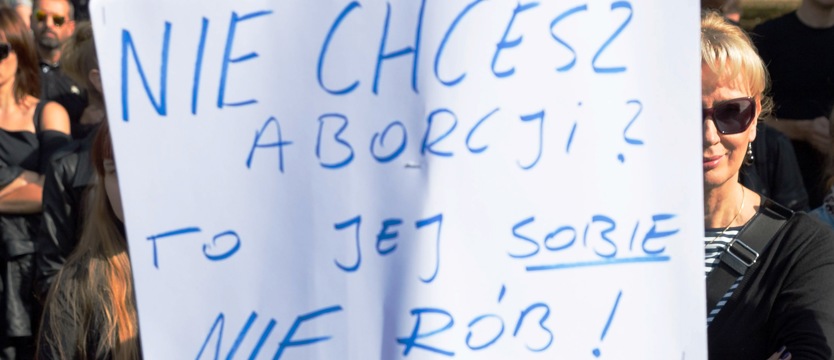 NIE CHCESZ
ABORCJi?
TO JEJ SOBIE
NIE RÓB!